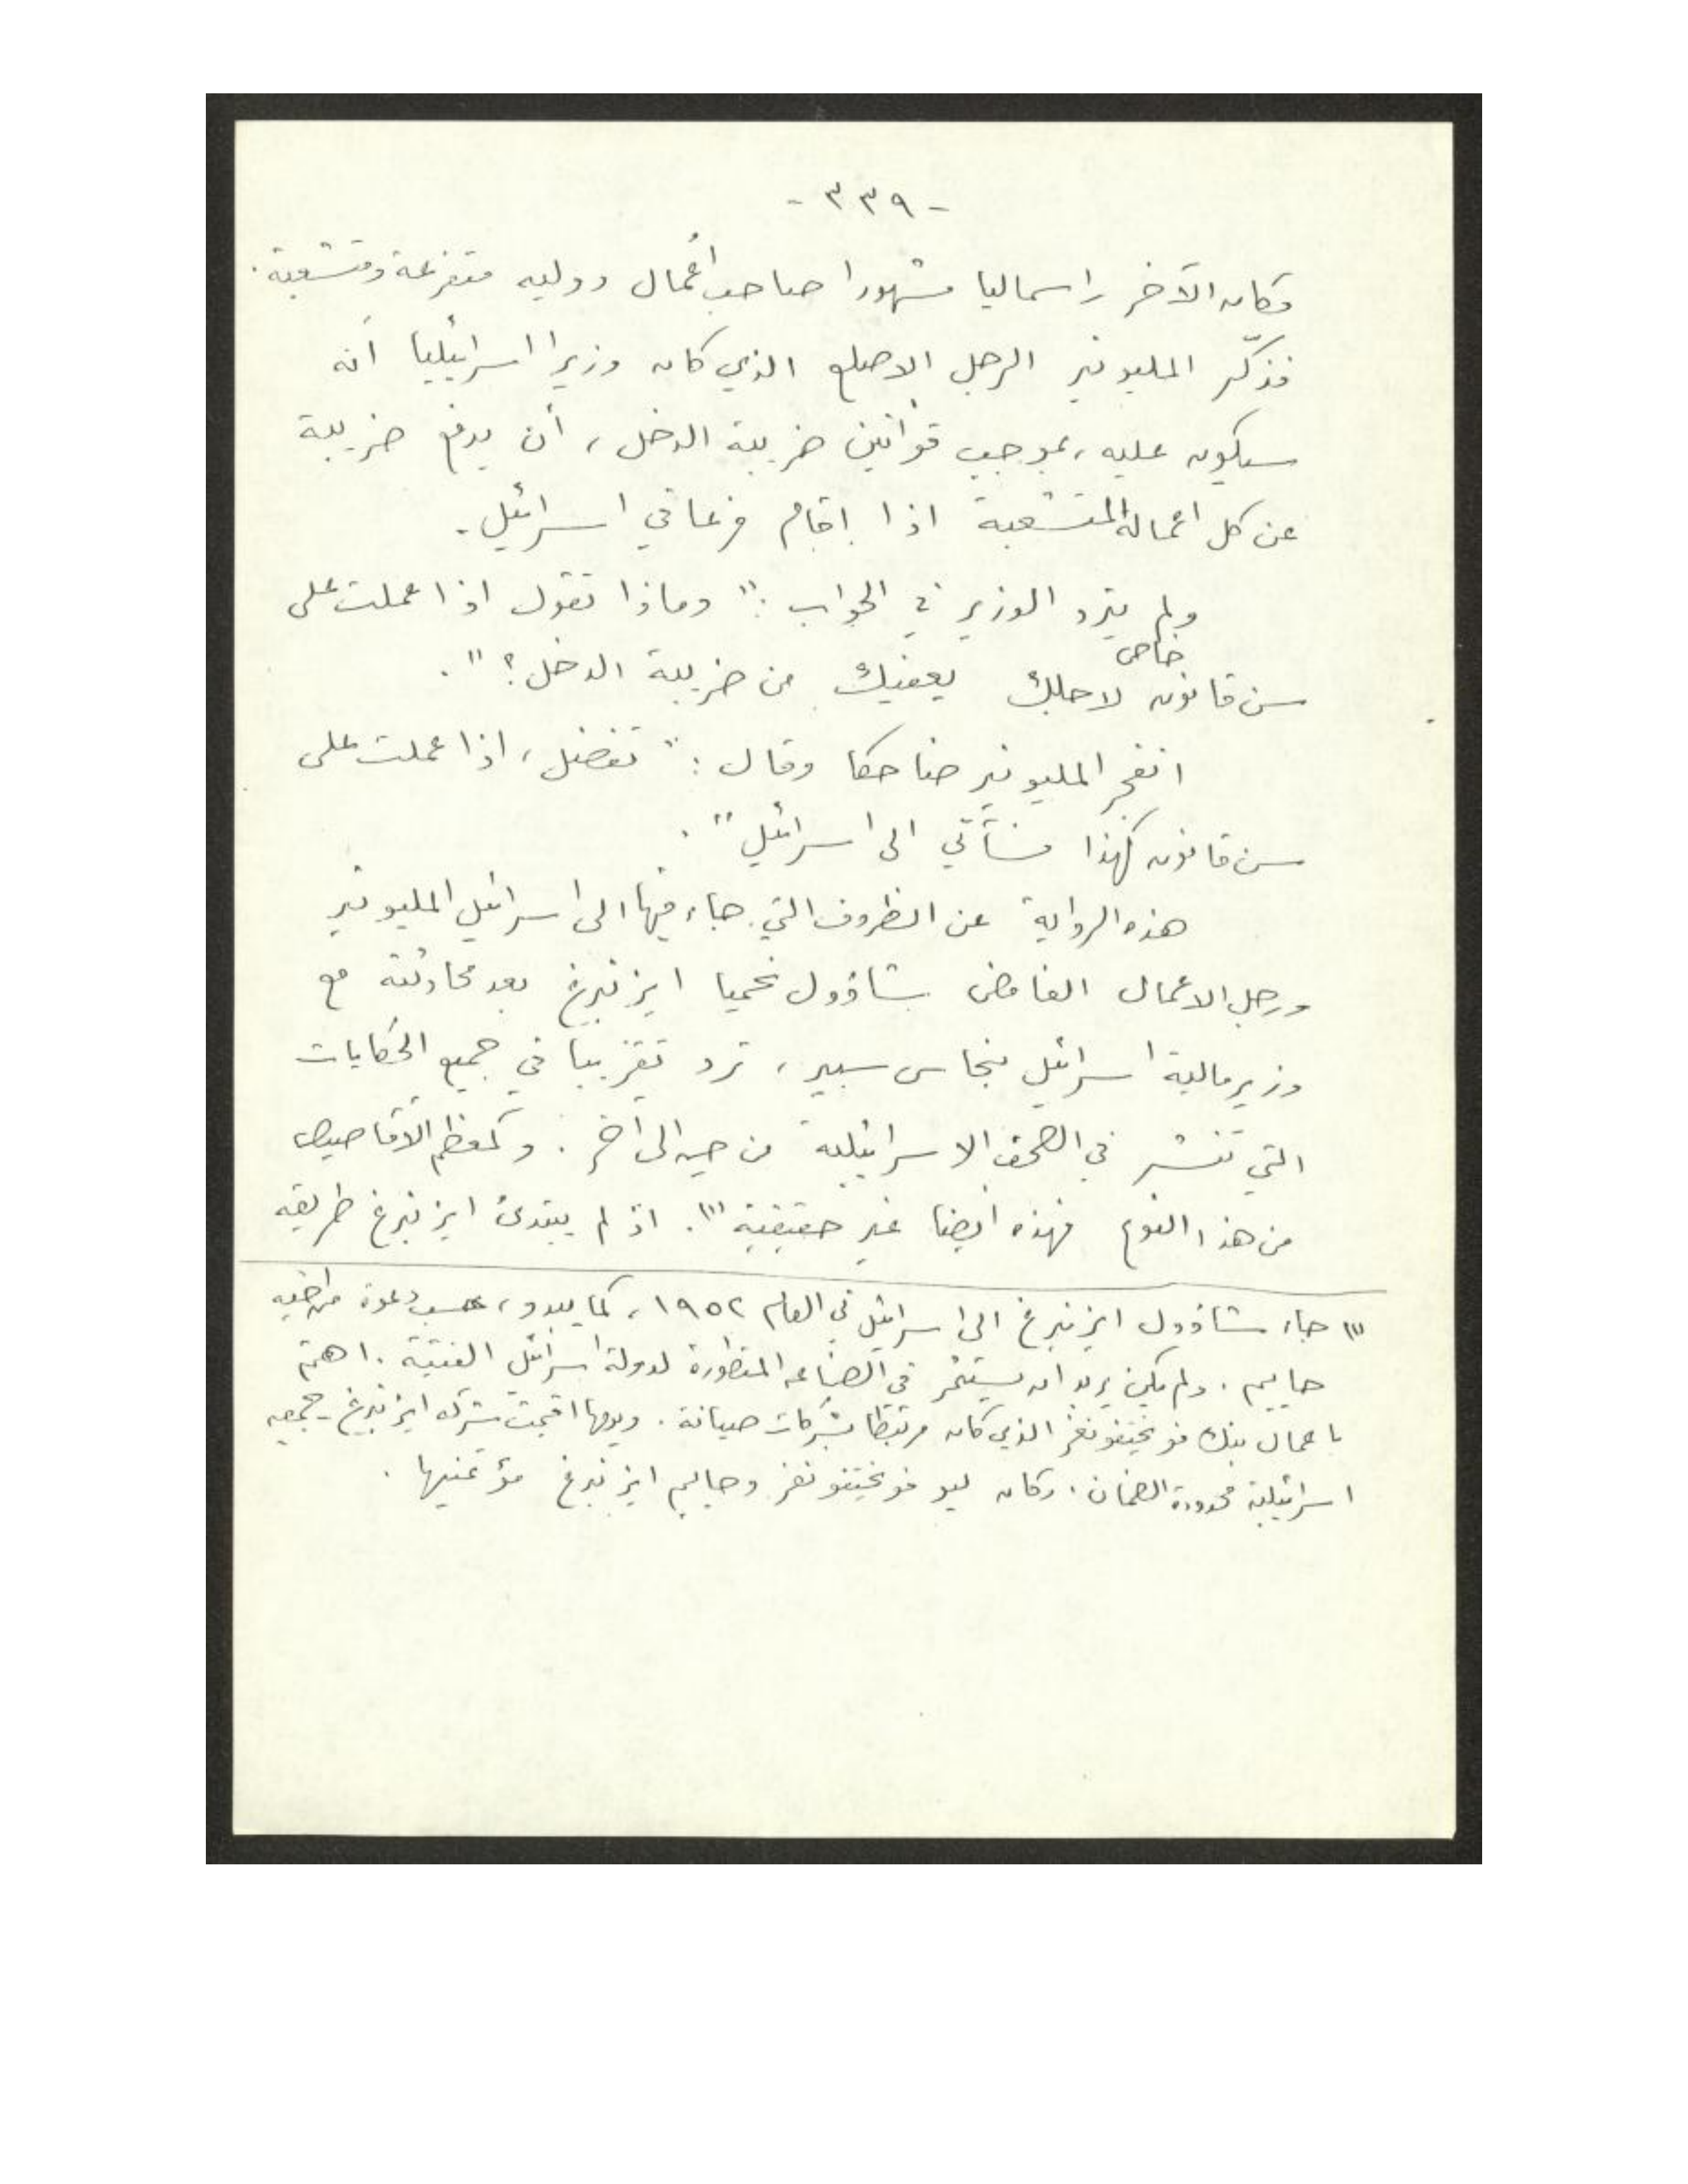 - ٣٣٩ -
وكان الآخر راسماليا مشهورا صاحب أعمال دولية متفرعة ومتشعبة.
فذكّر المليونير الرجل الاصلع الذي كان وزيرا اسرائيليا أنه
سيكون عليه، بموجب قوانين ضريبة الدخل، أن يدفع ضريبة
عن كل اعماله المتشعبة اذا اقام فرعا في اسرائيل.
ولم يتردد الوزير في الجواب: " وماذا تقول اذا عملت على
سن قانون خاص لاجلك يعفيك من ضريبة الدخل؟ ".
انفجر المليونير ضاحكا وقال: " تفضل، اذا عملت على
سن قانون كهذا فسآتي الى اسرائيل ".
هذه الرواية عن الظروف التي جاء فيها الى اسرائيل المليونير
ورجل الاعمال الغامض شاؤول نحميا ايزنبرغ بعد محادثته مع
وزير مالية اسرائيل بنحاس سبير، ترد تقريبا في جميع الحكايات
التي تنشر في الصحف الاسرائيلية من حين الى آخر. وكمعظم الاقاصيص
من هذا النوع فهذه ايضا غير حقيقية (١). اذ لم يبتدئ ايزنبرغ طريقه
(١) جاء شاؤول ايزنبرغ الى اسرائيل في العام ١٩٥٢، كما يبدو، حسب دعوة من اخيه
حاييم. ولم يكن يريد ان يستثمر في الصناعة المتطورة لدولة اسرائيل الفتية. اهتم
باعمال بنك فويختفنغر الذي كان مرتبطا بشركات صيانة. ويومها اقيمت شركة ايزنبرغ -
اسرائيلية محدودة الضمان. وكان ليو فويختفنغر وحاييم ايزنبرغ مؤتمنيها.